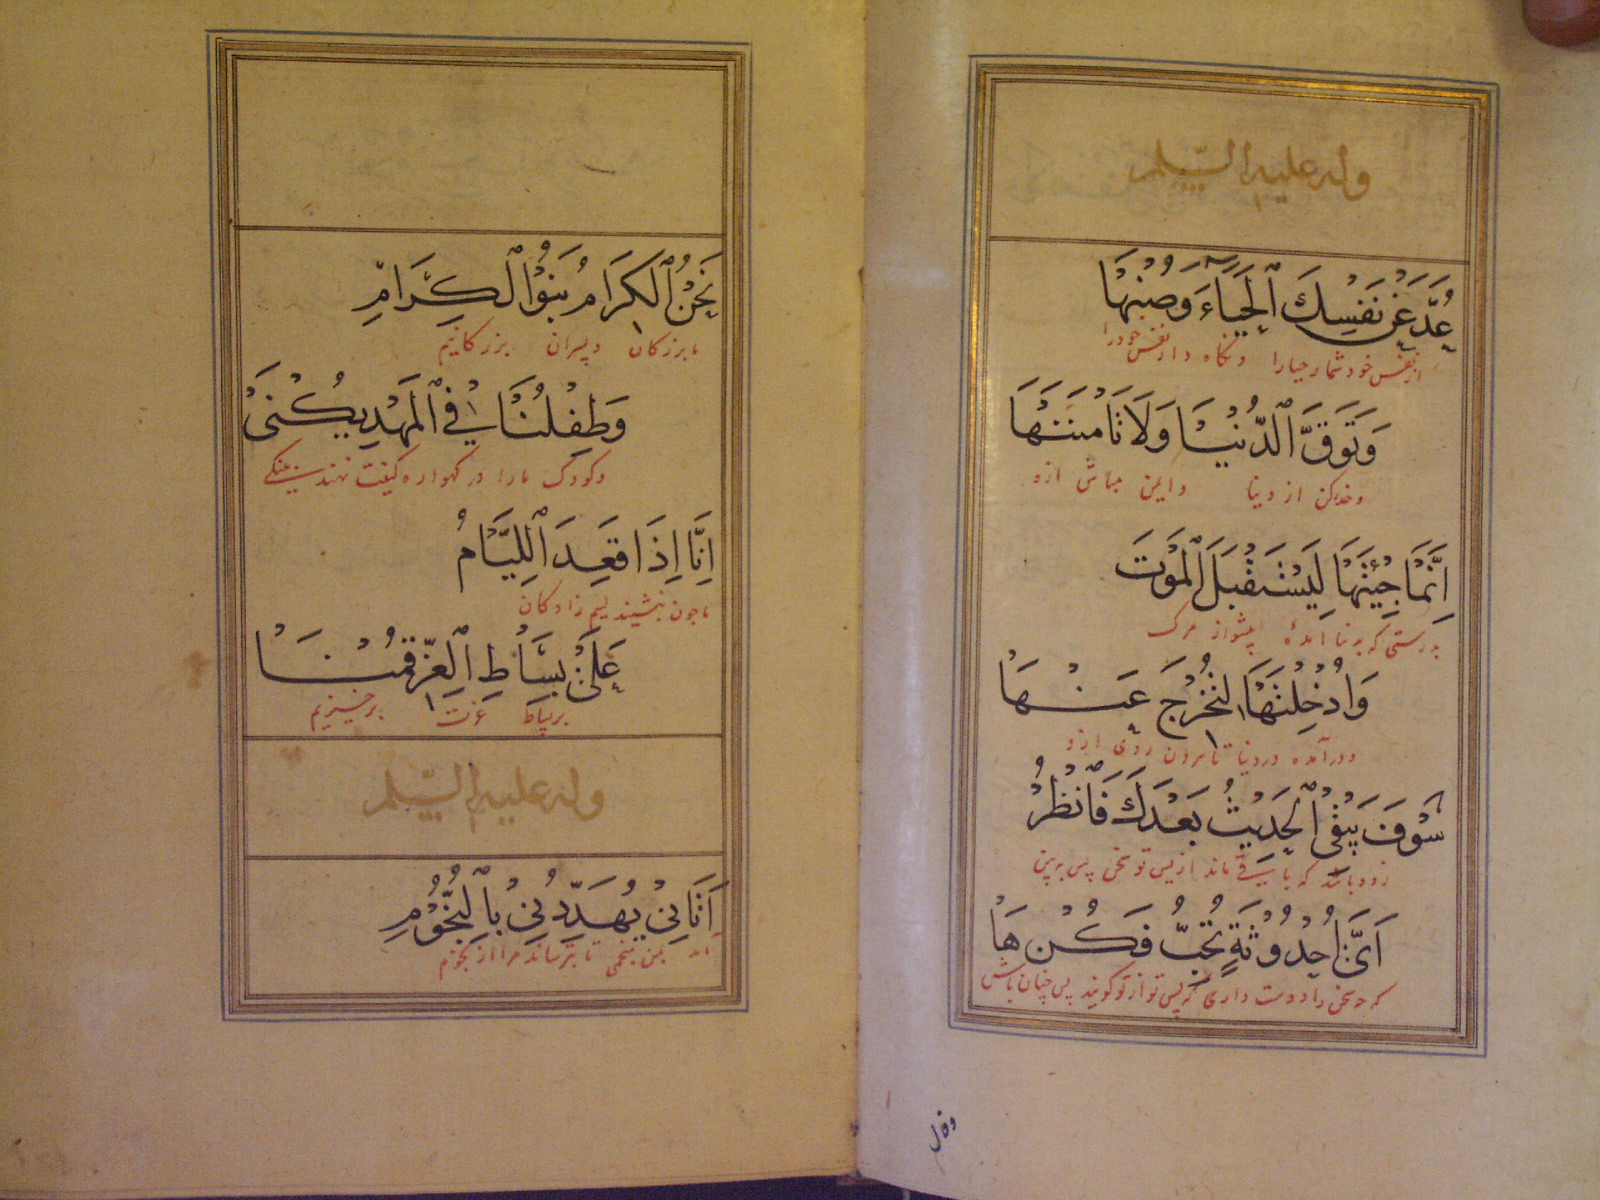 وله علیه السلم
عُدَّ عَن نَفسِكَ ٱلحَيَاءَ وَصُنهَا
از نفس خود شمار حیا را و نگاه دار نفس خود را
وَتَوَقَّ ٱلدُّنيَا وَلَا تَامَنَنهَا
و حذر کن از دنیا و ایمن مباش ازو
اِنَّمَا جِئتَهَا لِتَستَقبِلَ ٱلمَوتَ
بدرستی که بدنیا آمدهٔ پیشواز مرک
وَاُدخِلتَهَا لِتَخرُجَ عَنهَا
و در آمده در دنیا تا بیرون روی ازو
سَوفَ يَبقَى ٱلحَدِيثُ بَعدَكَ فَانظُر
زود باشد که باقی ماند از پس تو سخن پس ببین
اَيَّ اُحدُوثَةٍ تُحِبُّ فَكُنهَا
که سخن را دوست داری که پس تو از تو کویند پس چنان باش
وقال
نَحنُ ٱلكِرَامُ بَنُوا ٱلكِرَامِ
ما بزرکان و پسران بزرکانیم
وَطِفلُنَا فِي ٱلمَهدِ يُكنَى
و کودک ما را در کهواره کنیت نهند
اِنَّا اِذَا قَعَدَ ٱللِّيَامُ
ما چون بنشینند لیم زادکان
عَلَى بِسَاطِ ٱلعِزِّ قُمنَا
بر بساط عزت برخیزیم
وله علیه السلم
اَتَانِي يُهَدِّدُنِي بِالنُّجُومِ
آمد بمن منجمی تا بترساند مرا از نجوم